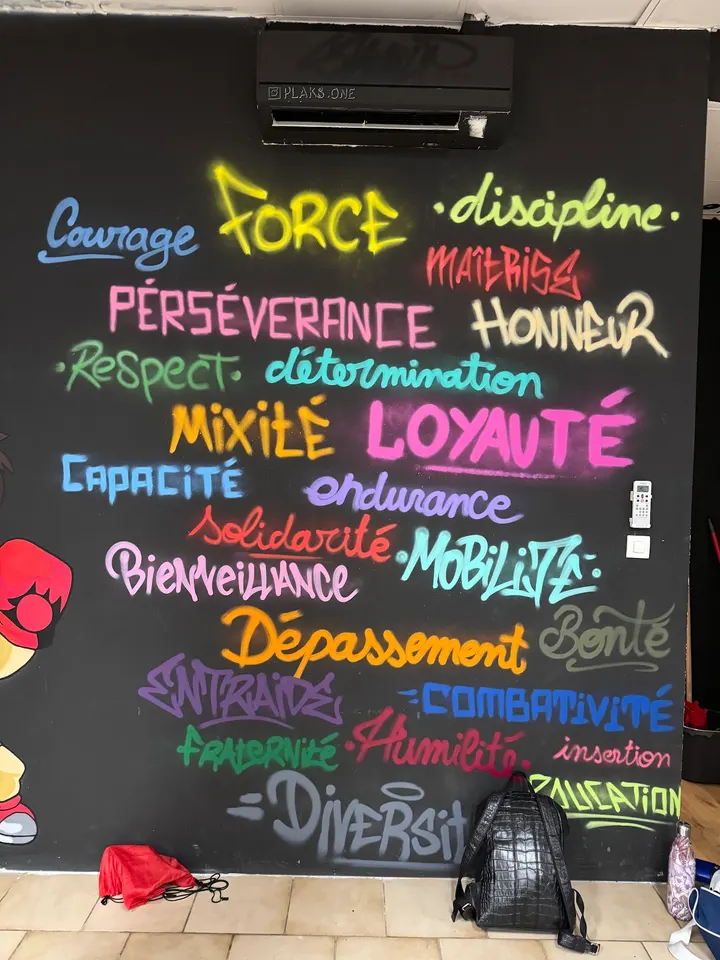 PLAKS.ONE
Courage FORCE • discipline •
MAÎTRISE
PÉRSÉVERANCE HONNEUR
• RESPECT • détermination
MIXITÉ LOYAUTÉ
CAPACITÉ endurance
solidarité
BIENVEILLANCE • MOBILITÉ •
Dépassement Bonté
ENTRAIDE COMBATIVITÉ
FRATERNITÉ • Humilité • insertion
DIVERSIT EDUCATION